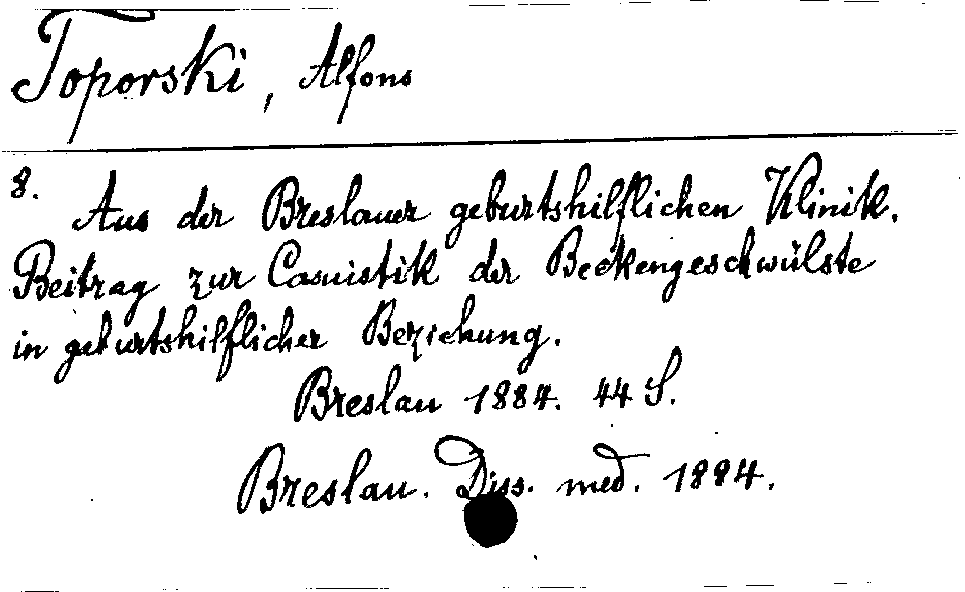 Toporski, Alfons
8.
Aus der Breslauer geburtshilflichen Klinik.
Beitrag zur Casuistik der Beckengeschwülste
in geburtshilflicher Beziehung.
Breslau 1884. 44 S.
Breslau. Diss. med. 1884.